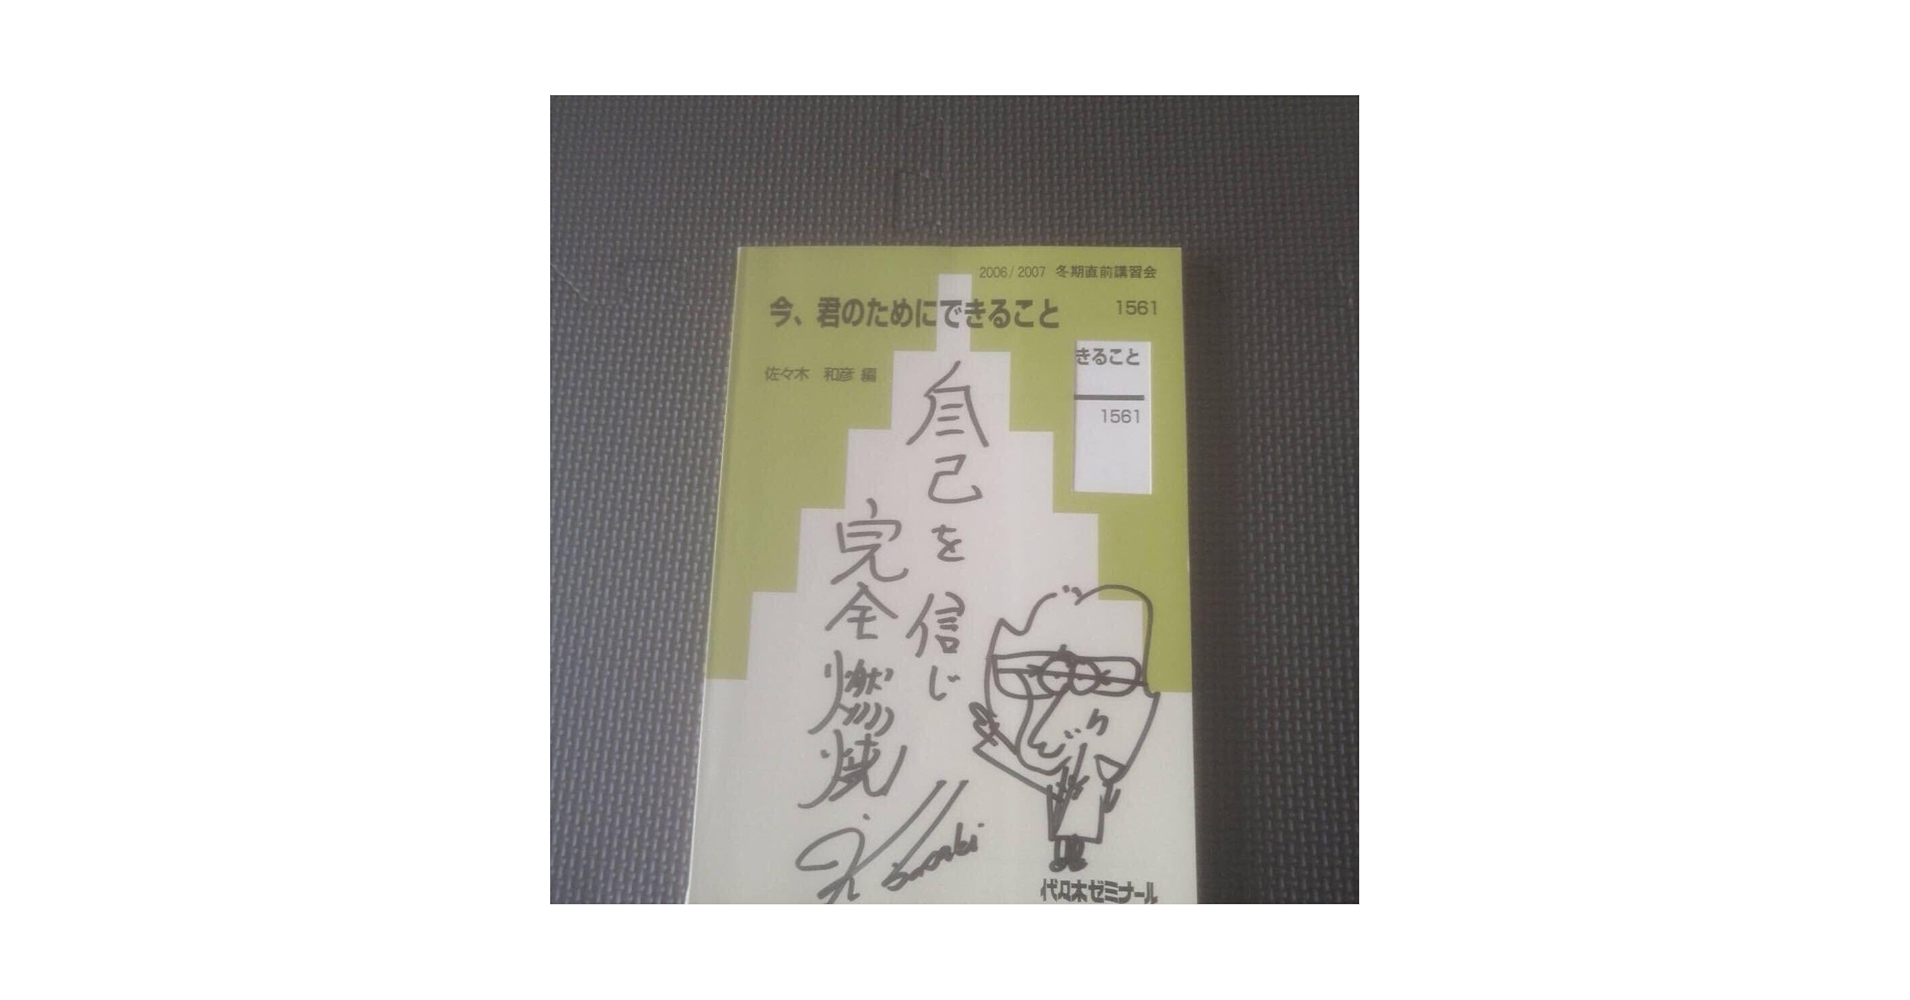 2006/2007 冬期直前講習会
今、君のためにできること
1561
きること
佐々木 和彦 編
1561
自己を信じ
完全燃焼.
K Sasaki
代々木ゼミナール